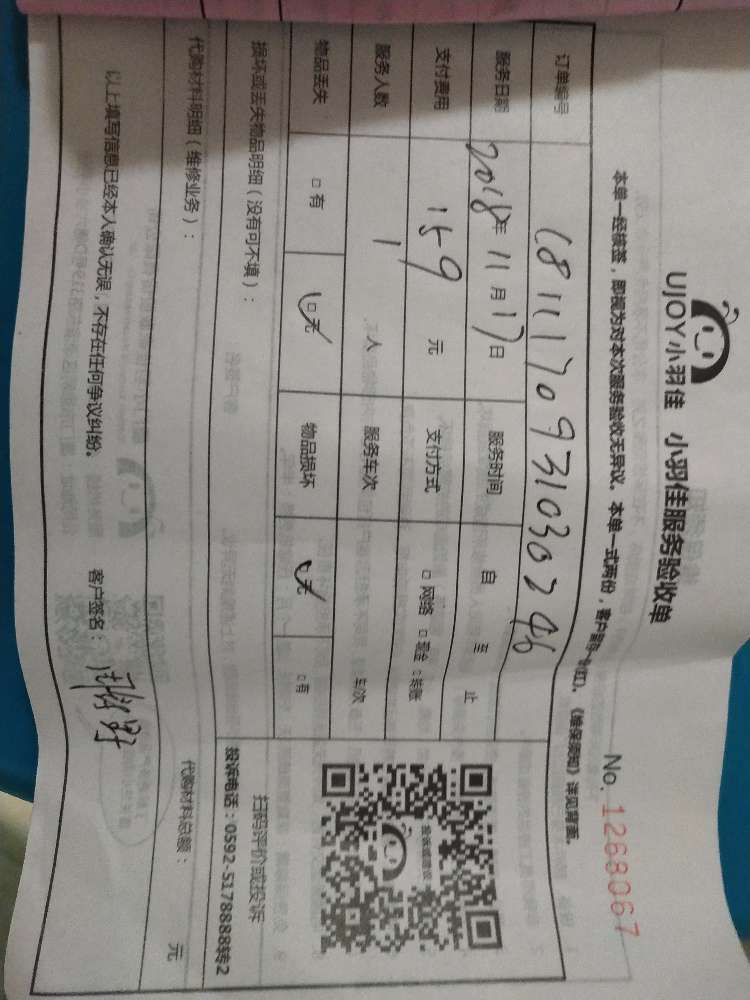 UJOY小羽佳 小羽佳服务验收单
No. 1268067
本单一经核签，即视为对本次服务验收无异议。本单一式两份，客户留存一份(红)、《维保须知》详见背面。
订单编号 1811170931030246
服务日期 2018年 11月 17日 服务时间 自 至 止
支付费用 159 元 支付方式 □ 网络 □ 现金 □ 转账
服务人数 1 人 服务车次 车次
物品丢失 □ 有 □ 无 物品损坏 □ 无 □ 有
损坏或丢失物品明细（没有可不填）：
投诉或建议
扫码评价或投诉
投诉电话：0592-5178888转2
代购材料明细（维修业务）：
代购材料总额： 元
以上填写信息已经本人确认无误，不存在任何争议纠纷。
客户签名：